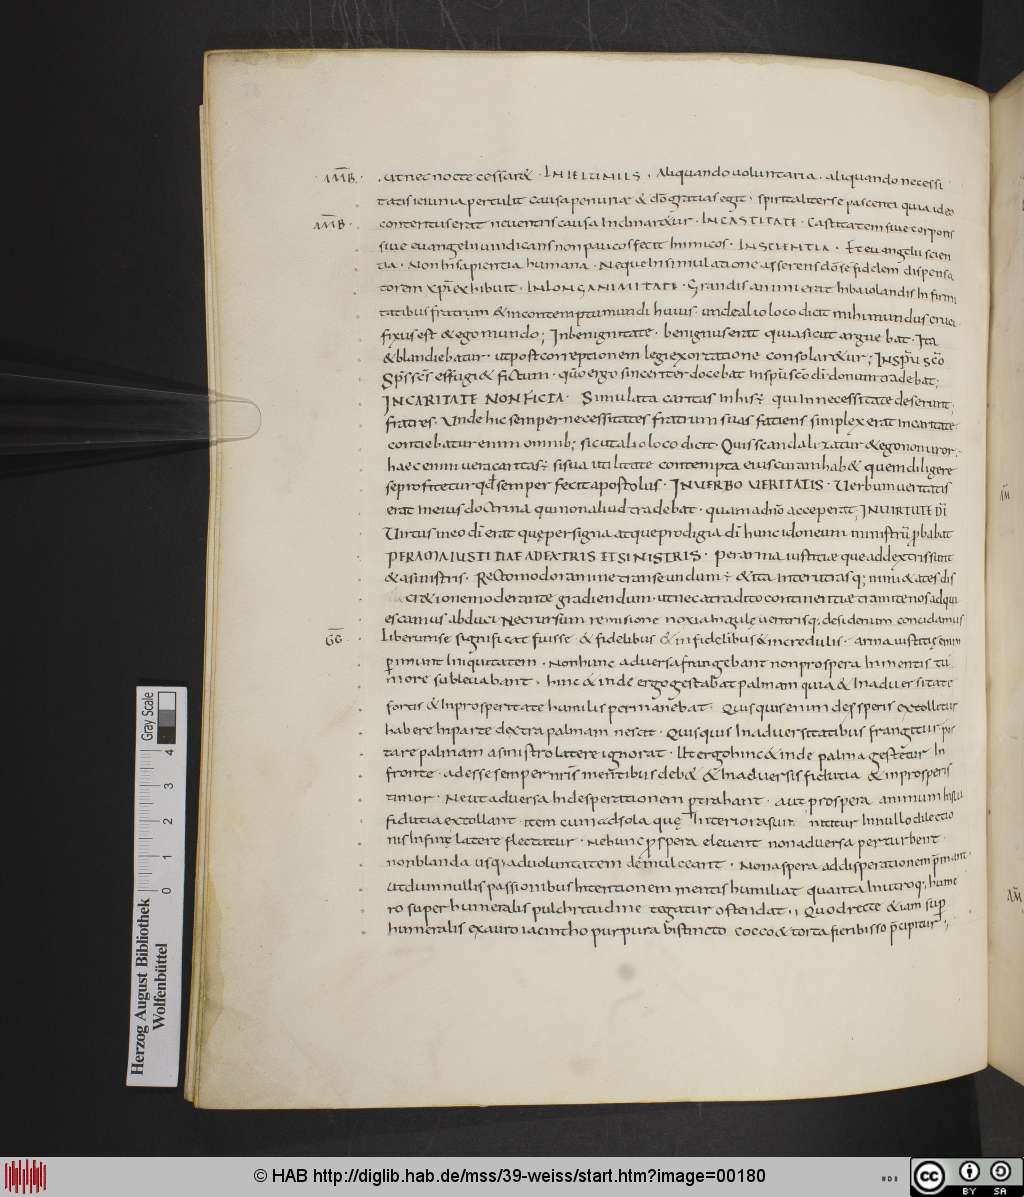 AMB · ut nec nocte cessar& · IN IEIUNIIS · Aliquando uoluntaria · aliquando necessi
tatis ieiunia pertulit causa penuriæ & dō gratias egit · spiritaliter se pascenti quia ideo
AMB · contentus erat ne uentris causa Inclinar&ur · IN CASTITATE · Castitatem siue corporis
siue euangelii uindicans non paucos fecit Inimicos · IN SCIENTIA · Et euangelii scien
tia · Non In sapientia humana · Neque In simulatione asserens dō se fidelem dispensa
torem xp̄i exhibuit · IN LONGANIMITATE · Grandis animi erat In baiolandis Infirmi
tatibus fratrum & in contemptu mundi huius · unde alio loco dicit mihi mundus cruci
fixus est & ego mundo; In benignitate · benignus erat quia sicut argue bat · Ita
& blandiebatur · ut post correptionem legi exortatione consolar&ur; IN SPŪ SCŌ
Sp̄s sc̄s effugi& fictum · quō ergo sinceriter docebat In spū scō dī donum tradebat;
IN CARITATE NON FICTA · Simulata caritas In his ÷ qui In necessitate deserunt
fratres · Unde hic semper necessitates fratrum suas faciens simplex erat In caritate
contiebatur enim omnib; sicut alio loco dicit · Quis scandalizatur & ego non uror ·
haec enim uera caritas ÷ si sua utilitate contempta eius curam hab& quem diligere
se profitetur qđ semper fecit apostolus · IN UERBO UERITATIS · Uerbum ueritatis
erat In eius doctrina qui non aliud tradebat · quam a dn̄o acceperat; IN UIRTUTE DĪ
Uirtus In eo dī erat quę per signa atque prodigia dī hunc idoneum ministrū p̄babat
PER ARMA IUSTITIAE A DEXTRIS ET SINISTRIS · Per arma iustitiæ que a dextris sunt
& a sinistris · Recto moderamine transeundum ÷ & ita Inter utrasq; nimi&ates dis
cr&ionem moderante gradiendum · ut nec a tradito continentiæ tramite nos adqui
escamus abduci Nec rursum remisione noxia In gulę uentrisq; desideriu concidamus
GG · Liberum se significat fuisse & fidelibus & infidelibus & incredulis · arma iustitię enim
p̄imunt Iniquitatem · Non hunc aduersa frangebant non prospera In mentis tu
more subleuabant · hinc & inde ergo gestabat palmam quia & In aduersitate
fortis & In prosperitate humilis permanebat · Quisquis enim de ꝓsperis extollitur
habere In parte dextra palmam nescit · Quisquis In aduersitatibus frangitur por
tare palmam a sinistro latere ignorat · Ut ergo hinc & inde palma gestetur In
fronte · adesse semper nr̄is mentibus deb& & In aduersis fidutia & in prosperis
timor · Ne ut aduersa In desperationem p̄trahant · aut prospera animum In sui
fidutia extollant item cum ad sola quę Interiora sunt nititur In nullo dilectio
nis Infimę latere flectatur · Ne hunc ꝓspera eleuent non aduersa perturbent ·
non blanda usq; ad uoluntatem demulceant · Non aspera ad disperationem p̄mant ·
Ut dum nullis passionibus Intentionem mentis humiliat quanta In utroq; hume
ro superhumeralis pulchritudine tegatur ostendat · Quod recte &iam sup̄
humeralis ex auro iacintho purpura bistincto cocco & torta fieri bisso p̄cipitur ·
Herzog August Bibliothek
Wolfenbüttel
0 1 2 3 4
Gray Scale
© HAB http://diglib.hab.de/mss/39-weiss/start.htm?image=00180
HAB
cc BY SA